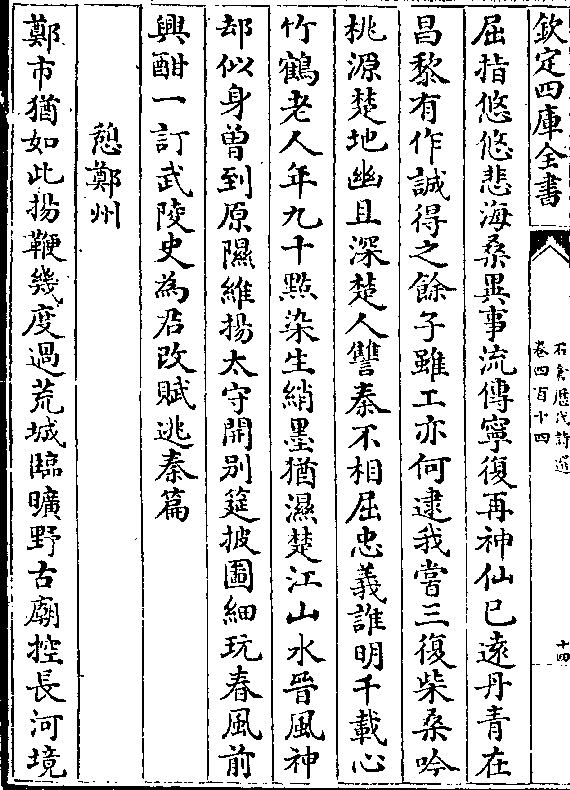 欽定四庫全書
石倉歷代詩選
卷四百十四
十四
屈指悠悠悲海桑異事流傳寧復再神仙已遠丹青在
昌黎有作誠得之餘子雖工亦何逮我嘗三復柴桑吟
桃源楚地幽且深楚人讐秦不相屈忠義誰明千載心
竹鶴老人年九十㸃染生綃墨猶濕楚江山水晉風神
却似身曾到原隰維揚太守開别筵披圖細玩春風前
興酣一訂武陵史為君改賦逃秦篇
憩鄭州
鄭市猶如此揚鞭幾度過荒城臨曠野古廟控長河境